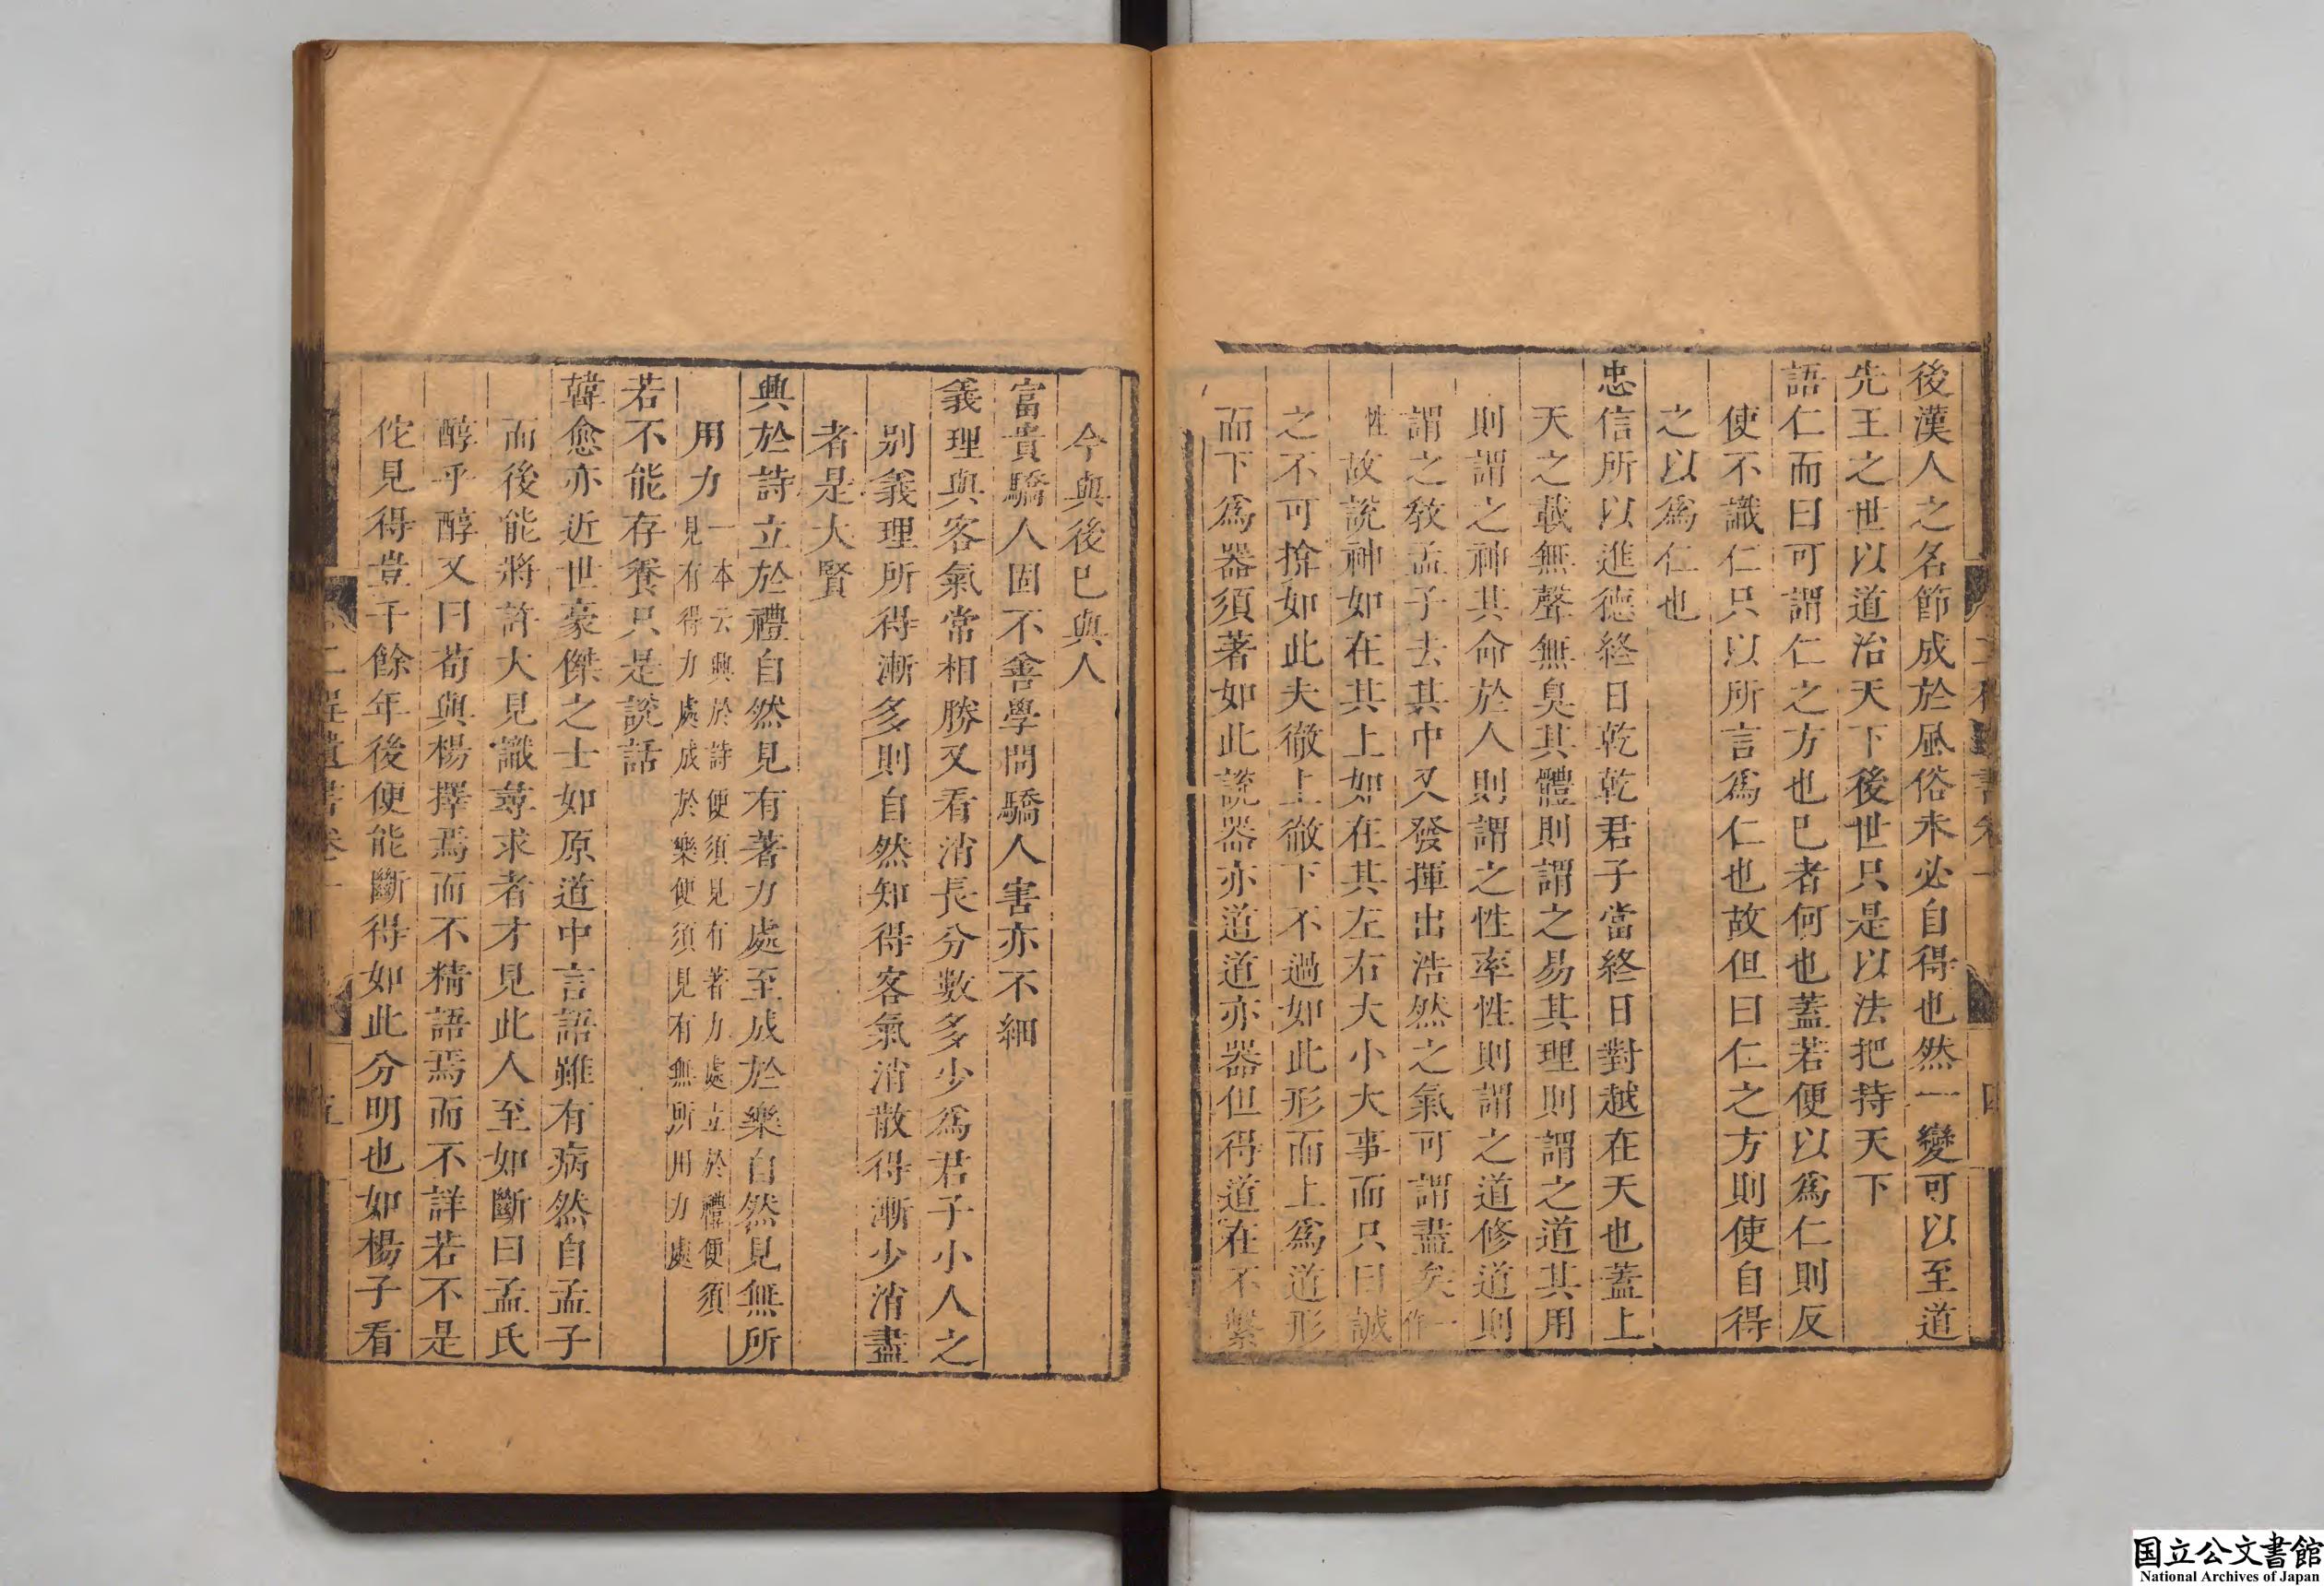 後漢人之名節成於風俗未必自得也然一變可以至道
先王之世以道治天下後世只是以法把持天下
語仁而曰可謂仁之方也已者何也蓋若便以爲仁則反
使不識仁只以所言爲仁也故但曰仁之方則使自得
之以爲仁也
忠信所以進德終日乾乾君子當終日對越在天也蓋上
天之載無聲無臭其體則謂之易其理則謂之道其用
則謂之神其命於人則謂之性率性則謂之道修道則
謂之教孟子去其中又發揮出浩然之氣可謂盡矣一作
性故說神如在其上如在其左右大小大事而只曰誠
之不可揜如此夫徹上徹下不過如此形而上爲道形
而下爲器須著如此說器亦道道亦器但得道在不繫
今與後已與人
富貴驕人固不善學問驕人害亦不細
義理與客氣常相勝又看消長分數多少爲君子小人之
別義理所得漸多則自然知得客氣消散得漸少消盡
者是大賢
興於詩立於禮自然見有著力處至成於樂自然見無所
用力一本云興於詩便須見有著力處立於禮便須
見有得力處成於樂便須見有無所用力處
若不能存養只是說話
韓愈亦近世豪傑之士如原道中言語雖有病然自孟子
而後能將許大見識尋求者才見此人至如斷曰孟氏
醇乎醇又曰荀與楊擇焉而不精語焉而不詳若不是
佗見得豈千餘年後便能斷得如此分明也如楊子看
二程遺書卷一
五
国立公文書館
National Archives of Japan